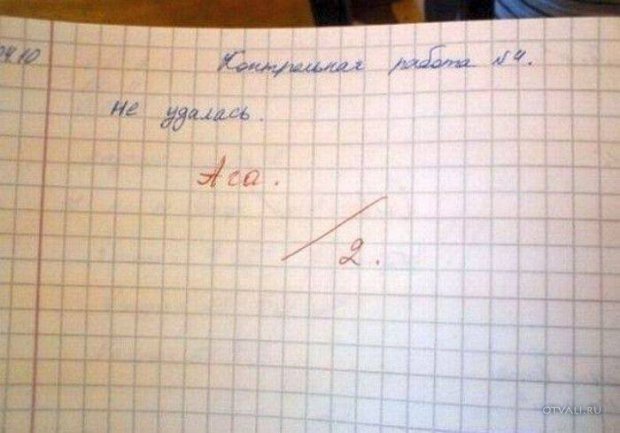 04.10 Контрольная работа №4.
Не удалась.
Ага.
2.
OTVALI.RU